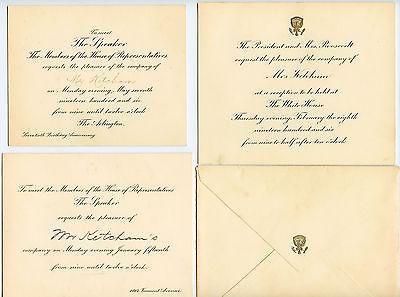 To meet
The Speaker
The Members of the House of Representatives
requests the pleasure of the company of
Mr Ketcham
on Monday evening, May seventh
nineteen hundred and six
from nine until twelve o'clock
The Arlington.
Seventieth Birthday Anniversary
The President and Mrs. Roosevelt
request the pleasure of the company of
Mr Ketcham
at a reception to be held at
The White House
Thursday evening, February the eighth
nineteen hundred and six
from nine to half after ten o'clock.
To meet the Members of the House of Representatives
The Speaker
requests the pleasure of
Mr Ketcham's
company on Monday evening January fifteenth
from nine until twelve o'clock.
Vermont Avenue